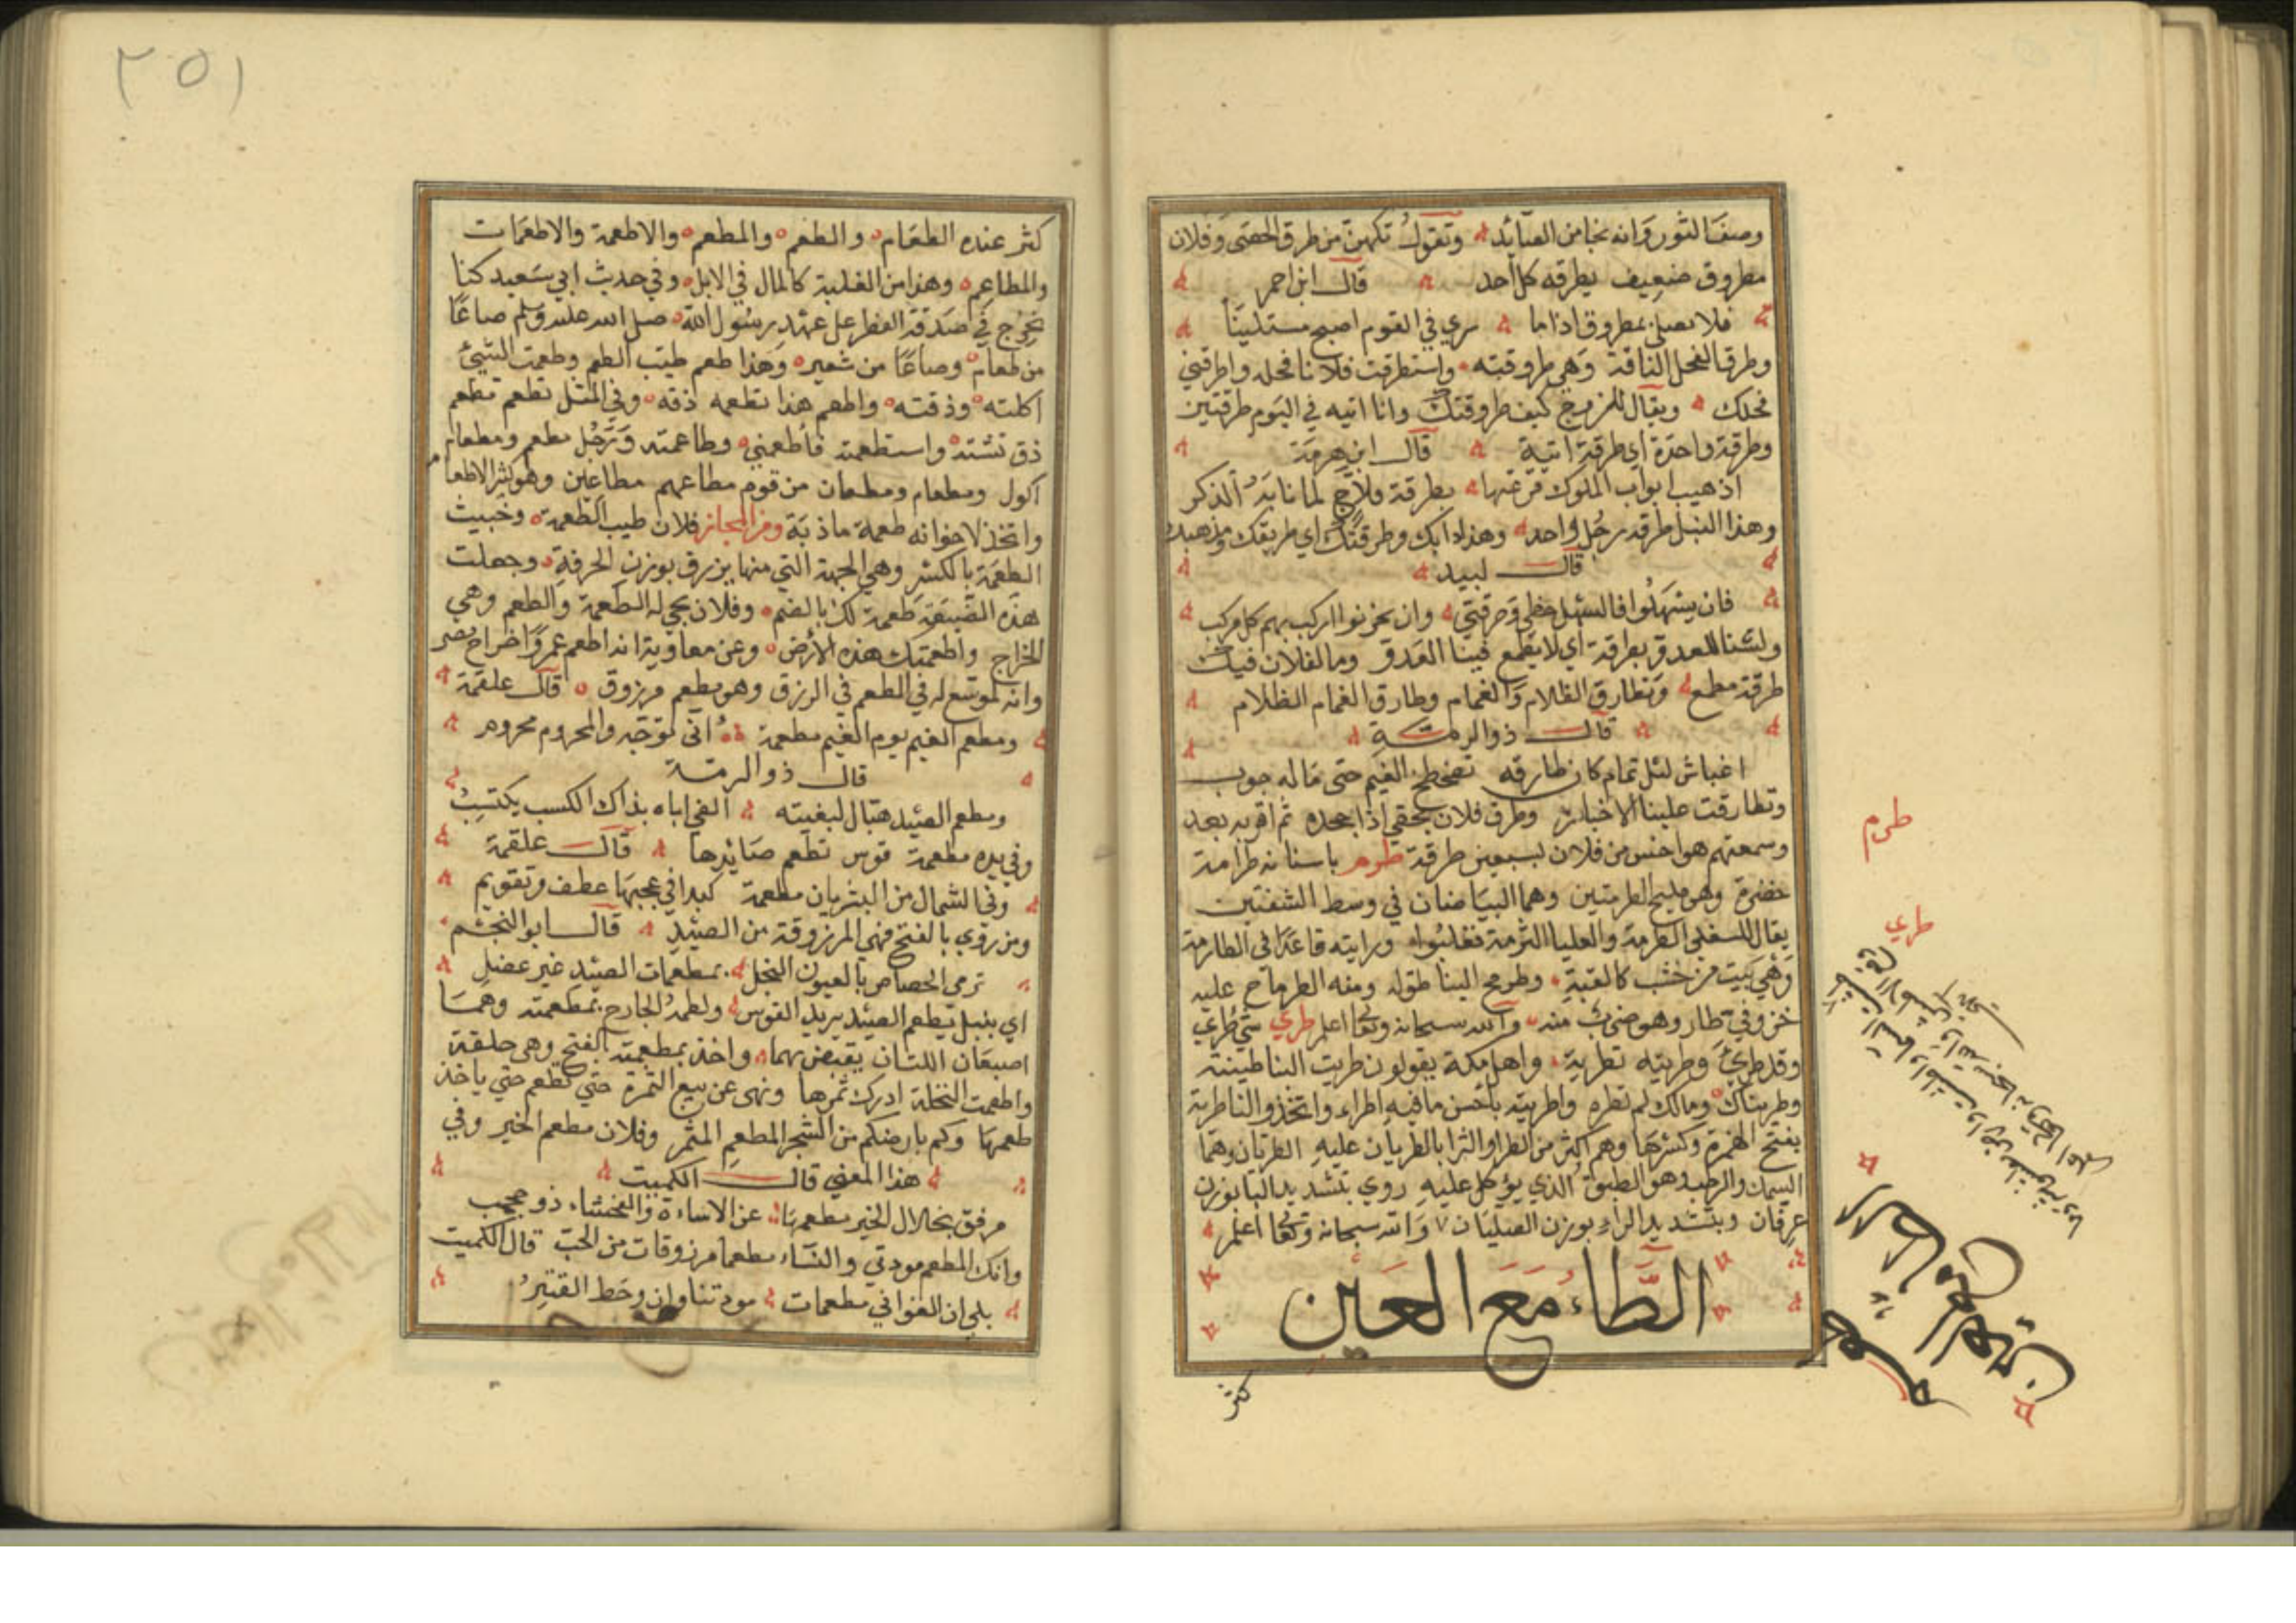 وصف الثور وانه نجا من الصائد وتقول تكهن من طرق الحصى وفلان
مطروق ضعيف يطرقه كل احد قال ابن احمر
فلا تصلى بمطروق اذا ما سرى في القوم اصبح مستكينًا
وطرق الفحل الناقة وهي طروقته واستطرقت فلانا فحله واطرقني
فحلك ويقال للزوج كيف طروقتك وانا اتيه في اليوم طرقتين
وطرقة واحدة اي طرقة اتية قال ابن هرمة
ابواب الملوك قرعتها بطرقة
وهذا النبل طرقة رجل واحد وهذا دابك وطرقتك اي طريقتك ومذهبك
قال لبيد
فان يسهلوا فالسهل حظي وطرقتي وان يحزنوا اركب بهم كل مركب
ولسنا للعدو بطرقة اي لا يطمع فينا العدو وما لفلان فيك
طرقة مطمع وتطارق الظلام والغمام وطارق الغمام الظلام
قال ذو الرمة
اغباش ليل تمام كان طارقه تطخطخ الغيم حتى ماله جوب
وتطارقت علينا الاخبار وطرق فلان بحقي اذا جحده ثم اقر به بعد
وسمعتهم هو اخس من فلان بسبعين طرقة طرم باسنانه طرامة
خضرة وهو مليح الطرمتين وهما البياضان في وسط الشفتين
يقال للسفلى الطرمة والعليا الثرمة فغلبوا ورايته قاعدًا في الطارمة
وهي بيت من خشب كالقبة وطرمح البنا طوله ومنه الطرماح عليه
خزوفي طار وهو ضرب منه والله سبحانه وتعالى اعلم طري شيء طري
وقد طري وطريته تطرية واهل مكة يقولون طريت البنا طينته
وطريناك ومالك لم تطره واطريته باحسن ما فيه اطراء واتخذوا لنا طرية
بفتح الهمزة وكسرها وهم اكثر من الطرا والثرا بالطريان عليه الطريان وهما
السمك والرطب وهو الطبق الذي يؤكل عليه روي بتشديد اليا بوزن
عرفان وبتشديد الراء بوزن الصليان والله سبحانه وتعالى اعلم
الطاء مع العين
طرم
طري
كثر
٢٥١
كثر عنده الطعام والطعم والمطعم والاطعمة والاطعمات
والمطاعم وهذا من الغلبة كالمال في الابل وفي حديث ابي سعيد كنا
نخرج في صدقة الفطر على عهد رسول الله صلى الله عليه وسلم صاعًا
من طعام وصاعًا من شعير وهذا طعم طيب الطعم وطعمت الشيئ
اكلته وذقته واطعم هذا تطعمه ذقه وفي المثل تطعم تطعم
ذق تشته واستطعمته فاطعمني وطاعمته ورجل مطعم ومطعام
اكول ومطعام ومطعان من قوم مطاعيم مطاعين وهو كثير الاطعام
واتخذ لاخوانه طعمة مأدبة ومن المجاز فلان طيب الطعمة وخبيث
الطعمة بالكسر وهي الجهة التي منها يرزق بوزن الحرفة وجعلت
هذه الضيعة طعمة لك بالضم وفلان يجي له الطعمة والطعم وهي
الخراج واطعمتك هذه الارض وعن معاوية انه اطعم عمرًا خراج مصر
وانه لموسع له في الطعم في الرزق وهو مطعم مرزوق قال علقمة
ومطعم الغنم يوم الغنم مطعمه انى توجه والمحروم محروم
قال ذو الرمة
ومطعم الصيد هبال لبغيته الفى اباه بذاك الكسب يكتسب
وفي يده مطعمة قوس تطعم صائدها قال علقمة
وفي الشمال من الشريان مطعمة كبدا في عجسها عطف وتقويم
ومن روي بالفتح فهي المرزوقة من الصيد قال ابو النجم
ترمى الخصاص بالعيون النجل بمطعمات الصيد غير عضل
اي بنبل تطعم الصيد يريد القوس ولطمه الجارح بمطعمته وهما
اصبعان اللتان يقبض بهما واخذ بمطعمته بالفتح وهي حلقه
واطعمت النخلة ادرك ثمرها ونهى عن بيع الثمرة حتى تطعم حتى ياخذ
طعمها وكم بارضكم من الشجر المطعم المثمر وفلان مطعم الخير وفي
هذا المعنى قال الكميت
مرفق بخلال الخير مطعمها عن الاساءة والفحشاء ذو حجب
وانك المطعم مودتي والنساء مطعما مرزوقات من الحب قال الكميت
بلى ان الغواني مطعمات مودتنا وان وخط القتير